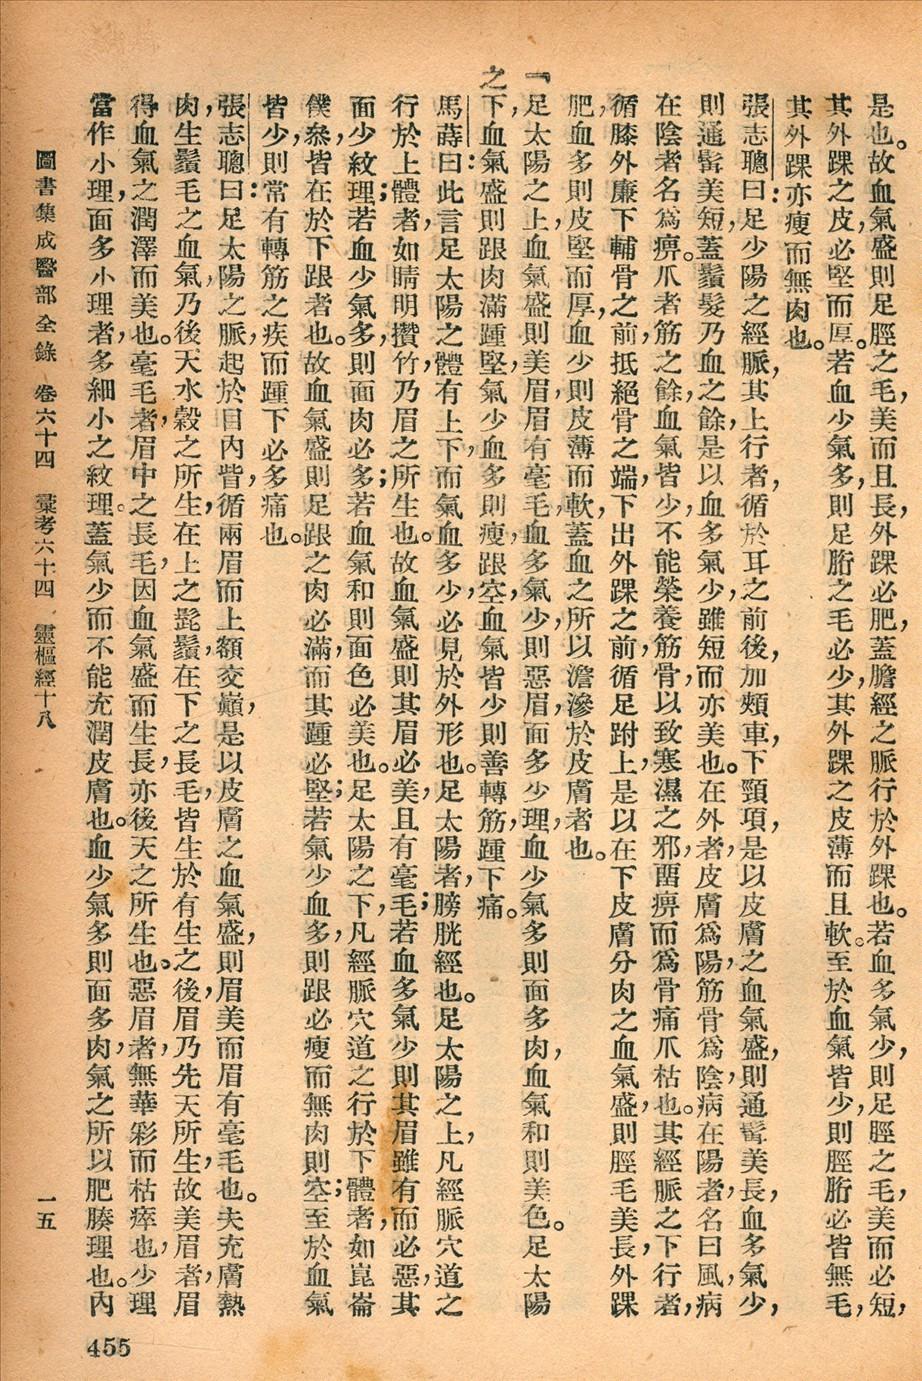 是也。故血氣盛則足脛之毛，美而且長，外踝必肥，蓋膽經之脈行於外踝也。若血多氣少，則足脛之毛，美而必短，
其外踝之皮，必堅而厚。若血少氣多，則足胻之毛必少，其外踝之皮薄而且軟。至於血氣皆少，則脛胻必皆無毛，
其外踝亦瘦而無肉也。
張志聰曰：足少陽之經脈，其上行者，循於耳之前後，加頰車，下頸項，是以皮膚之血氣盛，則通髯美長，血多氣少，
則通髯美短，蓋鬚髮乃血之餘，是以血多氣少，雖短而亦美也。在外者，皮膚爲陽，筋骨爲陰，病在陽者，名曰風，病
在陰者名爲痹。爪者，筋之餘，血氣皆少，不能榮養筋骨，以致寒濕之邪，留痹而爲骨痛爪枯也。其經脈之下行者，
循膝外廉下輔骨之前，抵絕骨之端，下出外踝之前，循足跗上，是以在下皮膚分肉之血氣盛，則脛毛美長，外踝
肥，血多則皮堅而厚，血少則皮薄而軟，蓋血之所以澹滲於皮膚者也。
「足太陽之上，血氣盛則美眉，眉有毫毛，血多氣少，則惡眉，面多少理，血少氣多則面多肉，血氣和則美色。足太陽
之下，血氣盛則跟肉滿踵堅，氣少血多則瘦，跟空，血氣皆少則善轉筋，踵下痛。
馬蒔曰：此言足太陽之體有上下，而氣血多少，必見於外形也。足太陽者，膀胱經也。足太陽之上，凡經脈穴道之
行於上體者，如睛明，攢竹，乃眉之所生也。故血氣盛則其眉必美，且有毫毛；若血多氣少則其眉雖有而必惡，其
面少紋理；若血少氣多，則面肉必多；若血氣和則面色必美也。足太陽之下，凡經脈穴道之行於下體者，如崑崙
僕參，皆在於下跟者也。故血氣盛則足跟之肉必滿，而其踵必堅；若氣少血多，則跟必瘦而無肉則空；至於血氣
皆少，則常有轉筋之疾而踵下必多痛也。
張志聰曰：足太陽之脈，起於目內眥，循兩眉而上額交巔，是以皮膚之血氣盛，則眉美而眉有毫毛也。夫充膚熱
肉，生鬚毛之血氣，乃後天水穀之所生，在上之髭鬚，在下之長毛，皆生於有生之後，眉乃先天所生，故美眉者，眉
得血氣之潤澤而美也。毫毛者，眉中之長毛，因血氣盛而生長，亦後天之所生也。惡眉者，無華彩而枯瘁也，少理
當作小理，面多小理者，多細小之紋理。蓋氣少而不能充潤皮膚也。血少氣多則面多肉，氣之所以肥腠理也。內
圖書集成醫部全錄　卷六十四　彙考六十四　靈樞經十八　一五
455